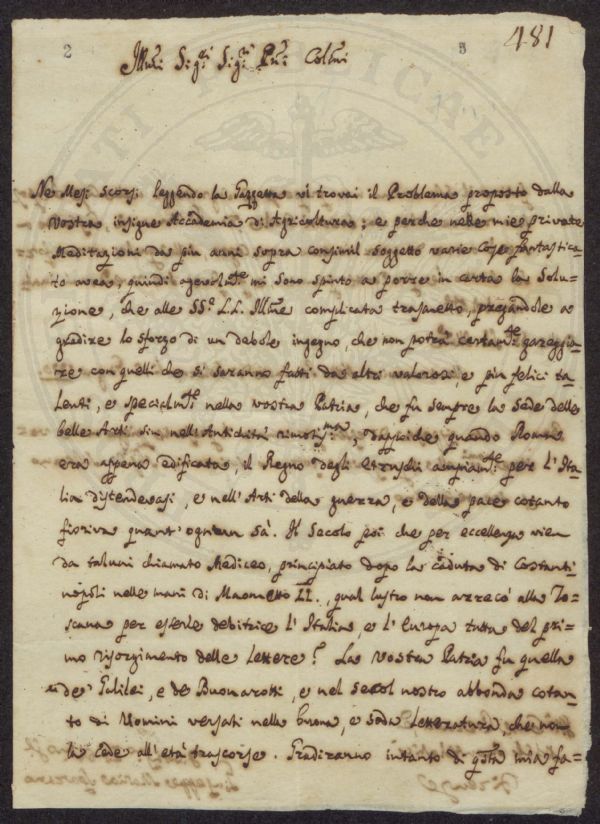 2 5 481
Illmi Sigri Sigri Prni Colmi
Ne Mesi scorsi leggendo la Gazzetta vi trovai il Problema proposto dalla
vostra insigne Accademia di Agricoltura; e perche nelle mie private
Meditazioni da piu anni sopra consimil soggetto varie cose fantastica-
to avea, quindi agevolmte mi sono spinto a porre in carta la Solu=
zione, che alle SSe LL. Illme complicata trasmetto, pregandole a
gradire lo sforzo di un debole ingegno, che non potrà certamte gareggia-
re con quelli che si saranno fatti da altri valorosi, e piu felici ta-
lenti, e specialmte nella vostra Patria, che fu sempre la sede delle
belle Arti sin nell'Antichità rimotissma, dappoiche quando Roma
era appena edificata, il Regno degli Etruschi ampiamte pere l'Ita-
lia distendevasi, e nell'Arti della guerra, e della pace cotanto
fioriva quant'ognun sà. Il Secolo poi che per eccellenza vien
da taluni chiamato Mediceo, principiato dopo la caduta di Costanti-
nopoli nelle mani di Maometto II., qual lustro non arrecò alla To-
scana per esserle debitrice l'Italia, e l'Europa tutta del pri-
mo risorgimento delle lettere? La vostra Patria fu quella
de' Galilei, e de Buonarotti, e nel secol nostro abbonda cotan-
to di Uomini versati nella buona, e soda letteratura, che non
la cede all'età trascorse. Gradiranno intanto di qsta mia fa-